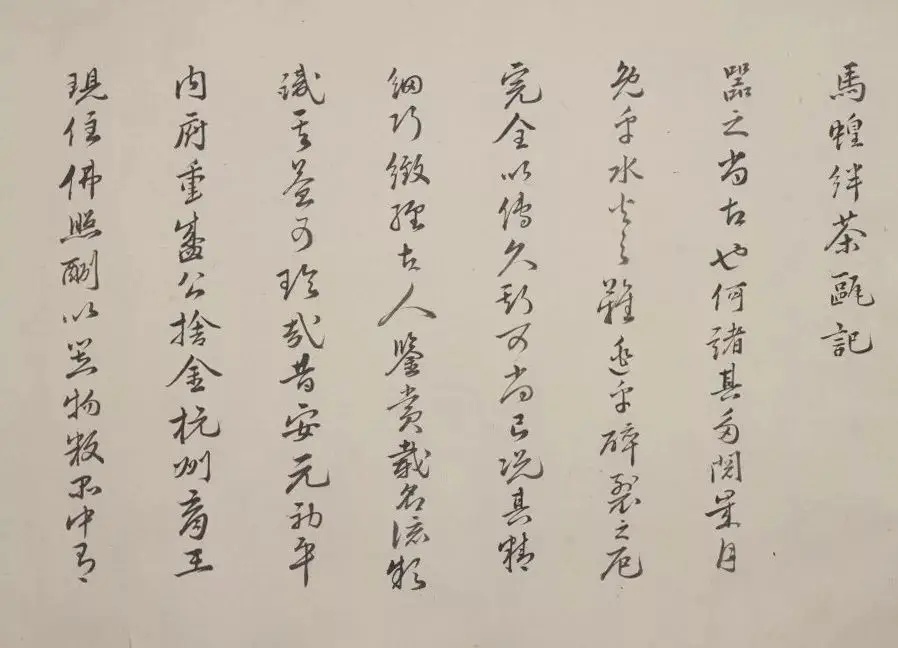 馬蝗絆茶甌記
器之尚古也何諸其多閲歲月
免乎水火之難逃乎碎裂之厄
完全以傳久斯可尚已况其精
細巧緻經古人鑒賞載名流
識其益可珍哉昔安元初平
内府重盛公捨金杭州育王
現住佛照酬以器物數品中有